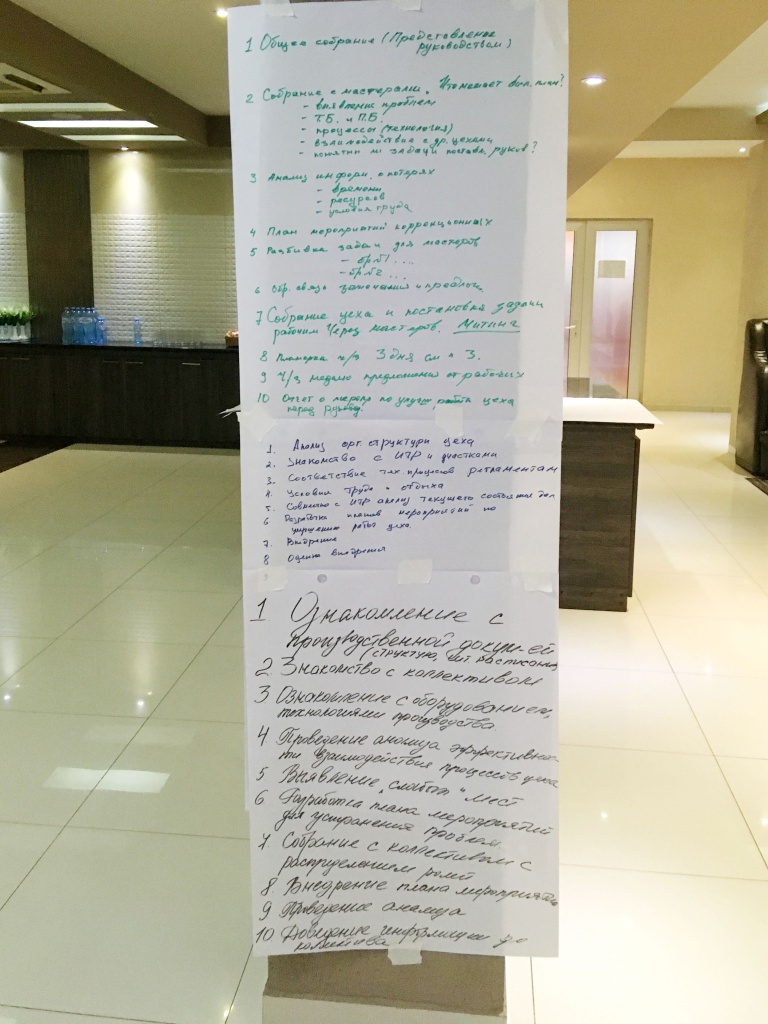 1 Общее собрание (Представление
руководством)
2 Собрание с мастерами. Что мешает вып. план?
- выявление проблем
- Т.Б. и П.Б.
- процессы (технология)
- взаимодействие с др. цехами
- понятны ли задачи поставл. руков?
3 Анализ информ. о потерях
- времени
- ресурсов
- условия труда
4 План мероприятий коррекционных
5 Разбивка задач для мастеров
- бр.№1 ...
- бр.№2 ...
6 Обр. связь замечания и предлож.
7 Собрание цеха и постановка задачи
рабочим через мастеров. Митинг
8 Планерка ч/з 3 дня см о 3.
9 Ч/з неделю предложения от рабочих
10 Отчет о мероп по улучш. работы цеха
перед руковод.
1. Анализ орг. структуры цеха
2. Знакомство с ИТР и участками
3. Соответствие тех. процесов регламентам
4. Условия труда и отдыха
5. Совместно с ИТР анализ текущего состояния дел
6 Разработка планов мероприятий по
улучшению работы цеха
7. Внедрение
8 Оценка внедрения
1 Ознакомление с
производственной докум-ей
(структура, шт. расписание)
2. Знакомство с коллективом
3 Ознакомление с оборудованием,
технологиями производства.
4 Проведение анализа эффективнос-
ти взаимодействия процессов цеха
5 Выявление "слабых" мест
6 Разработка плана мероприятий
для устранения проблем.
7 Собрание с коллективом с
распределением ролей
8. Внедрение плана мероприятий
9 Проведение анализа
10 Доведение информации до
коллектива